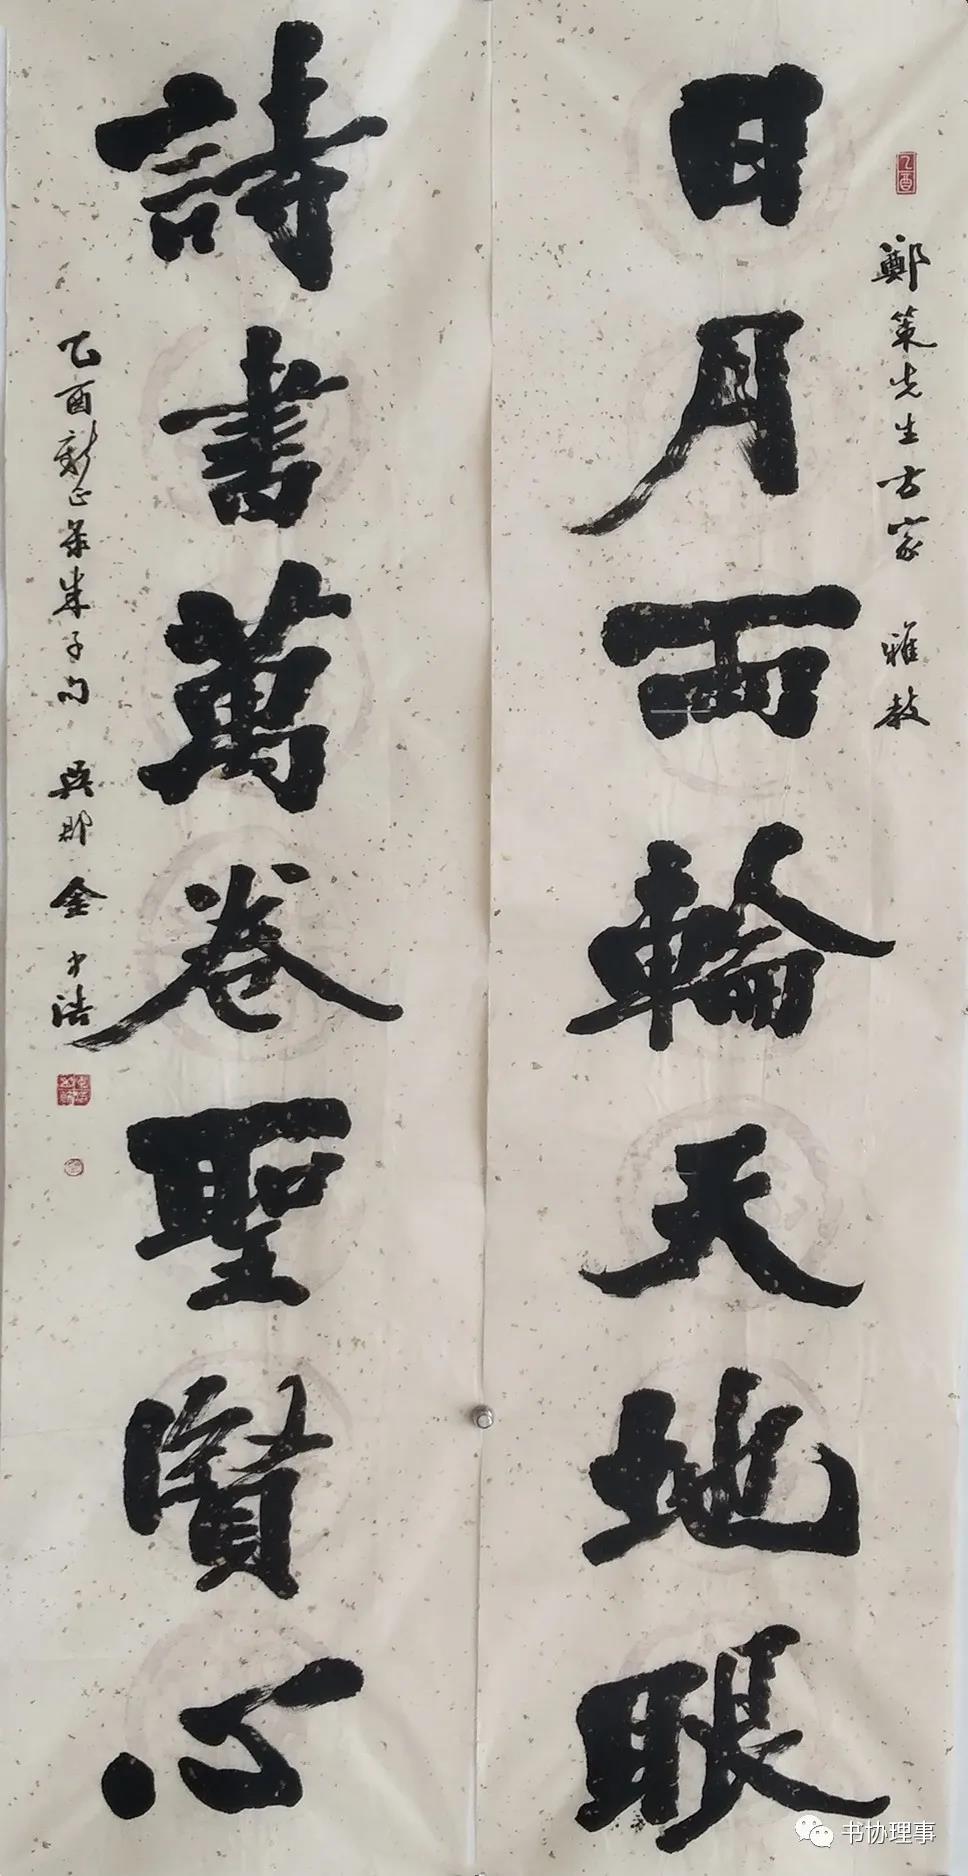 鄭策先生方家 雅教
日月兩輪天地眼
詩書萬卷聖賢心
乙酉新正录朱子句 吳郡金中浩
乙酉
书协理事